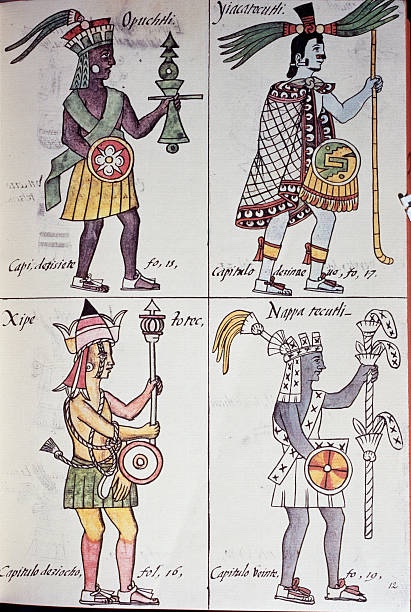 Opuchtli.
Capi, desisiete fo, 18,
Yiacatecutli.
Capitulo desinae ue, fo, 17.
Xipe totec,
Capitulo desiocho, fol, 16,
Nappa tecutli
Capitulo veinte, fo, 19,
12